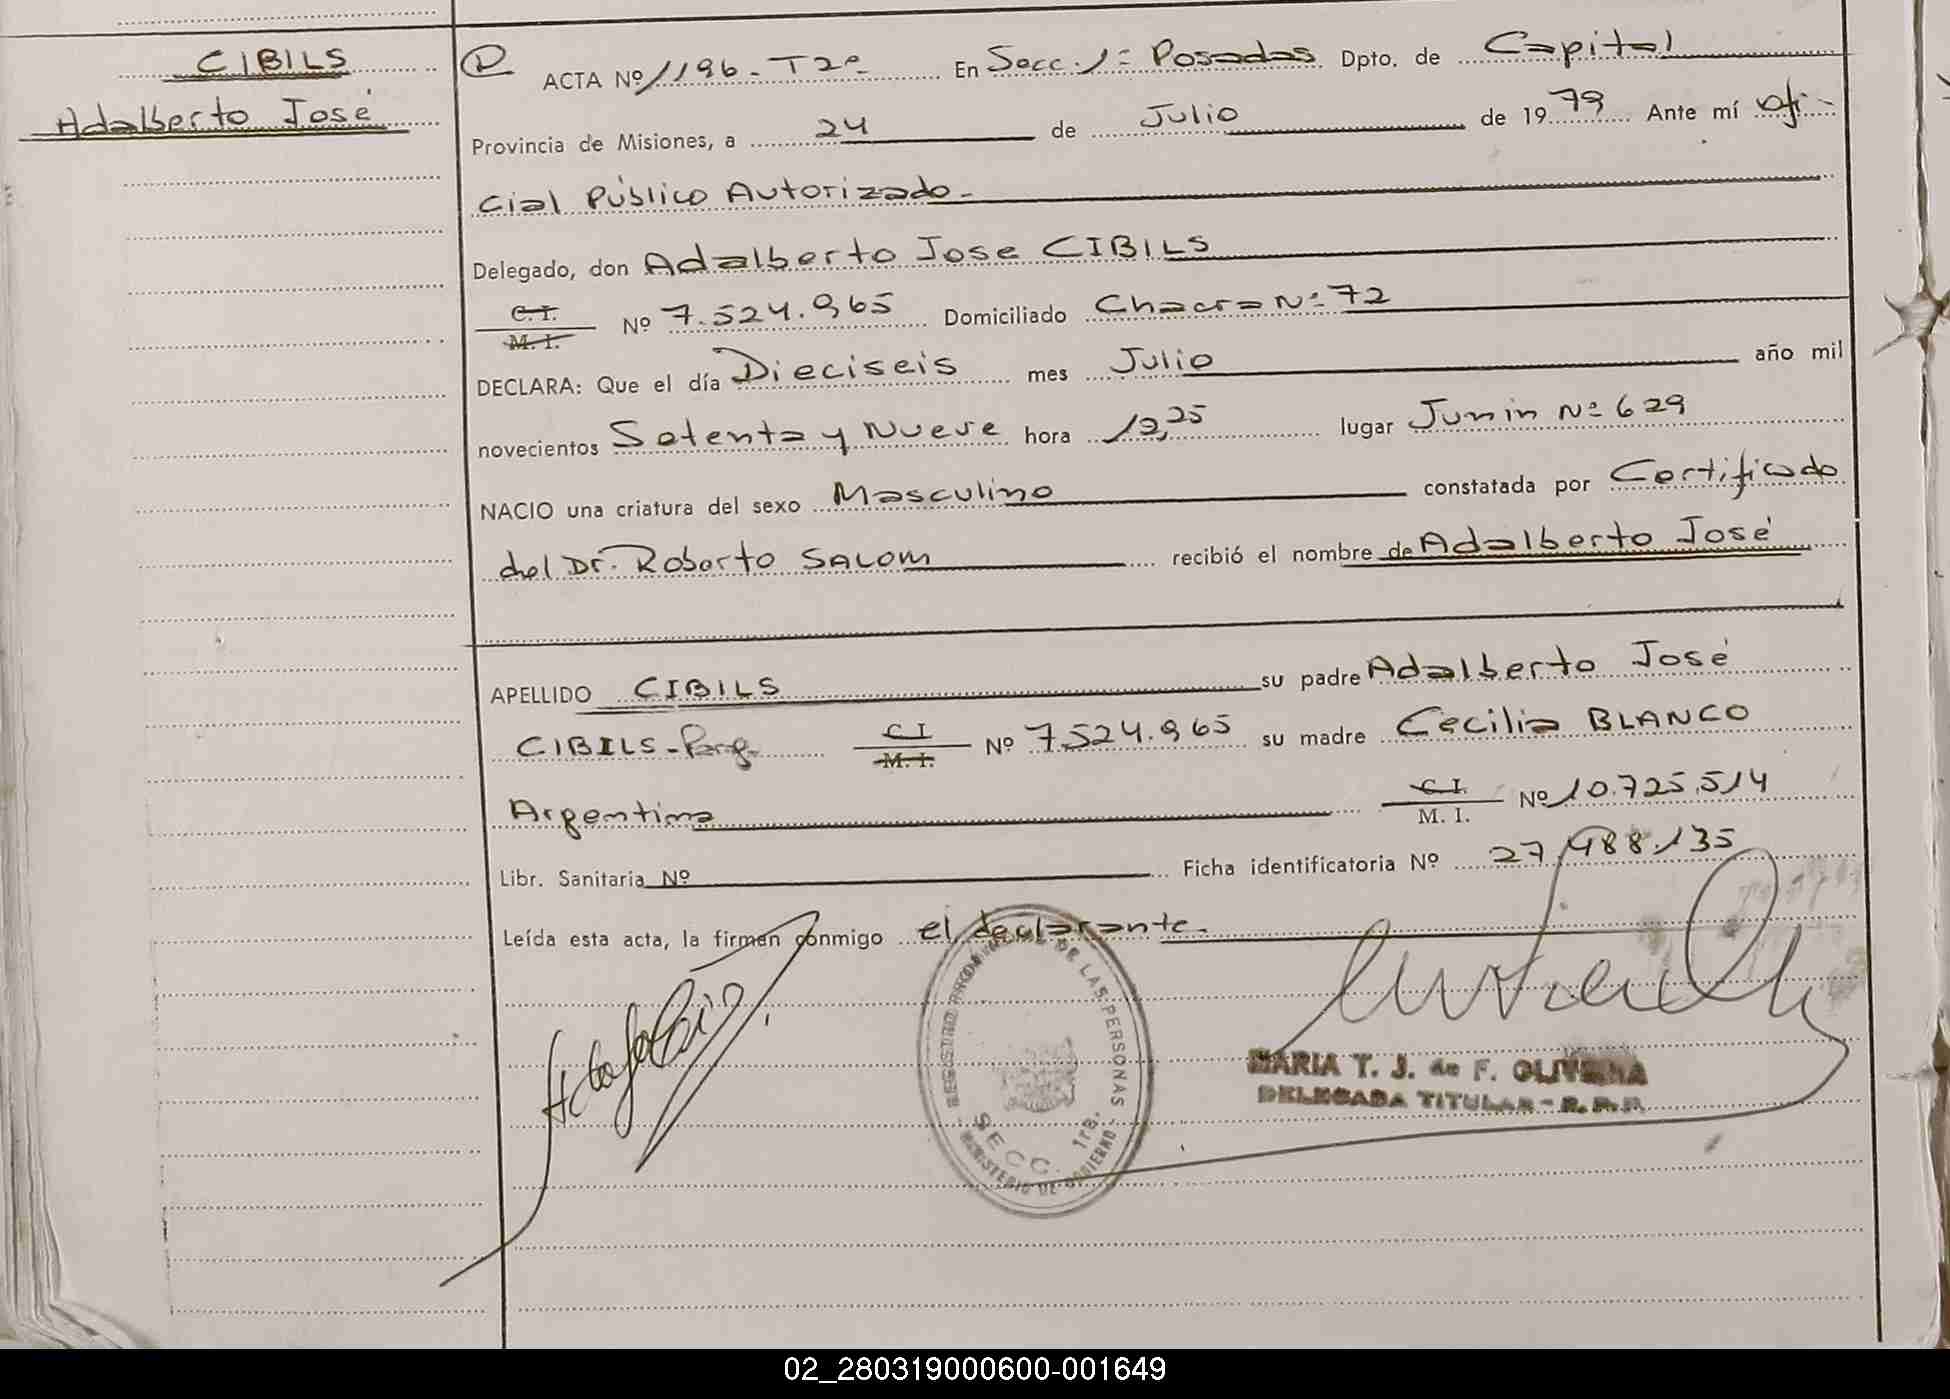 CIBILS
Adalberto José
ACTA Nº 1196 - T2º En Secc. 1ª Posadas Dpto. de Capital
Provincia de Misiones, a 24 de Julio de 1979 Ante mí ofi-
cial Público Autorizado.-
Delegado, don Adalberto Jose CIBILS
C. I.
M. I.
Nº 7.524.965 Domiciliado Chacra Nº 72
DECLARA: Que el día Dieciseis mes Julio año mil
novecientos Setenta y Nueve hora 12,25 lugar Junin Nº 629
NACIO una criatura del sexo Masculino constatada por Certificado
del Dr. Roberto SALOM recibió el nombre de Adalberto José
APELLIDO CIBILS su padre Adalberto José
CIBILS - Parg. C I Nº 7.524.965 su madre Cecilia BLANCO
M. I.
Argentina C I. Nº 10.725.514
M. I.
Libr. Sanitaria Nº Ficha identificatoria Nº 27.988.135
Leída esta acta, la firman conmigo el declarante.
REGISTRO PROVINCIAL DE LAS PERSONAS
SECC. 1ra.
MINISTERIO DE GOBIERNO
MARIA T. J. de F. OLIVEIRA
DELEGADA TITULAR - R. P. P.
02_280319000600-001649